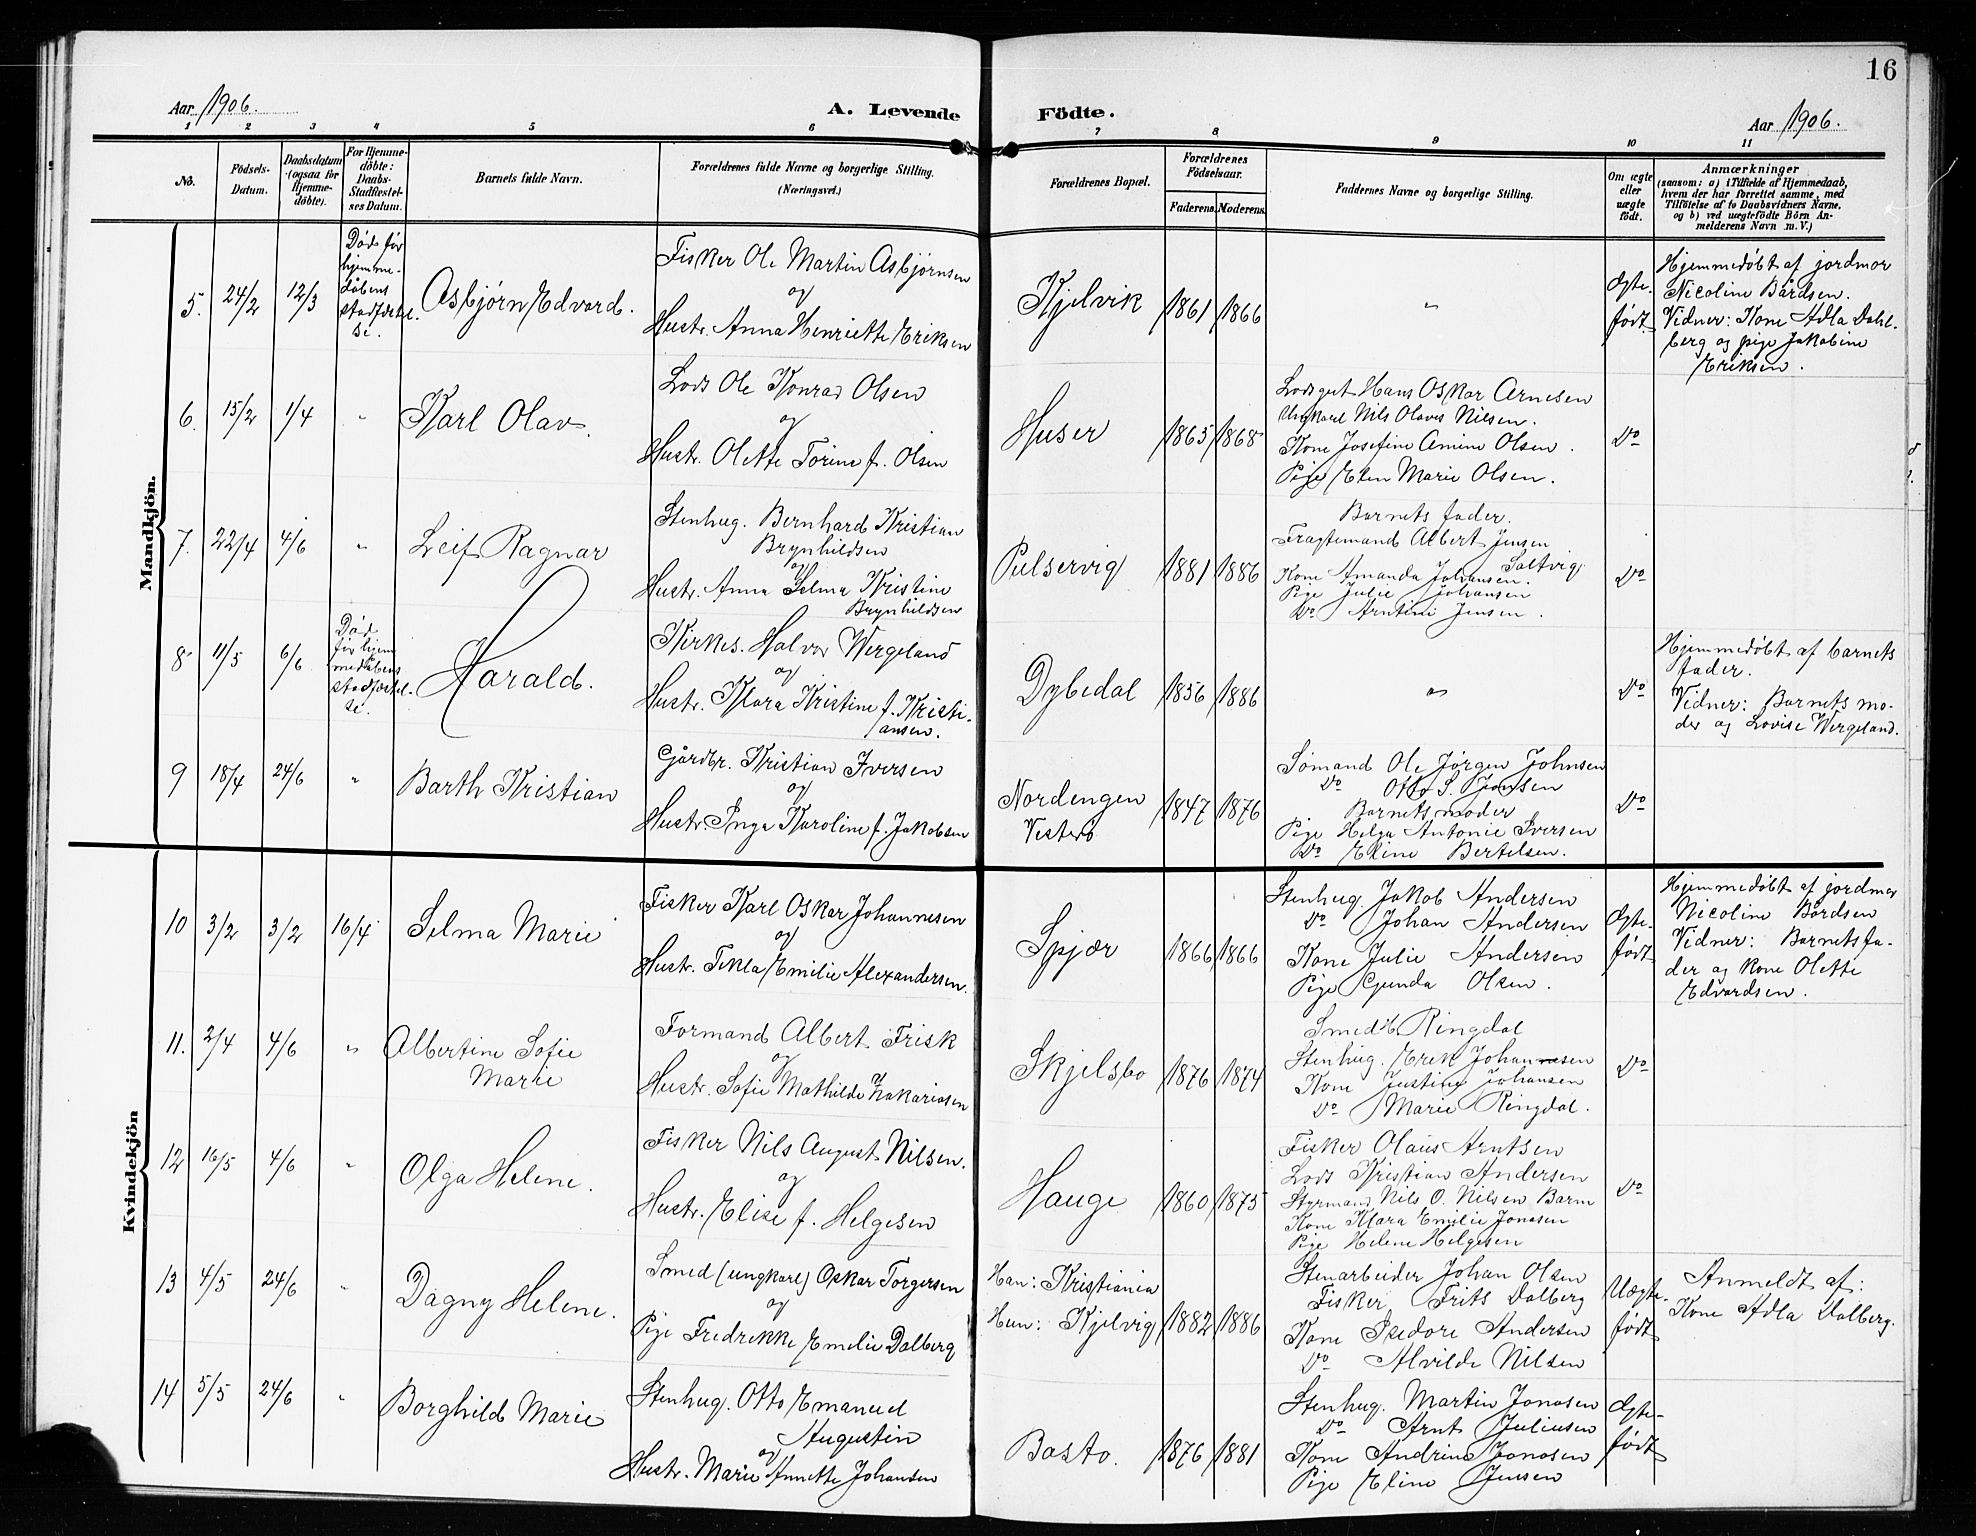 16
Aar 1906.
A. Levende Födte.
Aar 1906.
1 2 3 4 5 6 7 8 9 10 11
No.
Födsels-
Datum.
Daabsdatum
(ogsaa for
Hjemme-
döbte).
For Hjemme-
döbte:
Daabs-
Stadfæstel-
ses Datum.
Barnets fulde Navn.
Forældrenes fulde Navne og borgerlige Stilling.
(Næringsvei.)
Forældrenes Bopæl.
Forældrenes
Födselsaar.
Faderens. Moderens.
Faddernes Navne og borgerlige Stilling.
Om ægte
eller
uægte
födt.
Anmærkninger
(saasom: a) i Tilfælde af Hjemmedaab,
hvem der har forrettet samme, med
Tilföielse af to Daabsvidners Navne,
og b) ved uægtefödte Börn An-
melderens Navn m. V.)
Mandkjön.
5. 24/2 12/3
Död før
hjemme-
døbens
stadfæstel-
se.
Asbjørn Edvard.
Fisker Ole Martin Asbjørnsen
og
Hustr. Anna Henriette Eriksen
Kjelvik 1861 1866 "
Ægte-
født
Hjemmedøbt af jordmor
Nicoline Bårdsen.
Vidner: Kone Adla Dahl-
berg og pige Jakobine
Eriksen.
6. 15/2 1/4 "
Karl Olav.
Lods Ole Konrad Olsen
og
Hustr. Olette Torine f. Olsen
Huser 1865 1868
Lodsgut Hans Oskar Arnesen
Ungkarl Nils Olaves Nilsen.
Kone Josefine Amine Olsen.
Pige Elen Marie Olsen.
Do
7. 22/4 4/6 "
Leif Ragnar
Stenhug. Bernhard Kristian
Brynhildsen
og
Hustr. Anna Selma Kristine
Brynhildsen
Pulservig 1881 1886
Barnets fader.
Fragtemand Albert Jensen
Saltvig
Kone Amanda Johansen.
Pige Julie Johansen
Do Arntine Jensen.
Do
8 11/5 6/6
Död
før hjem
medøbens
stadfæstel-
se.
Harald.
Kirkes. Halvor Wergeland
og
Hustr. Klara Kristine f. Kristi-
ansen.
Dybedal 1856 1886 "
Do
Hjemmedøbt af barnets
fader.
Vidner: Barnets mo-
der og Lovise Wergeland.
9 18/4 24/6 "
Barth Kristian
Gårdbr. Kristian Iversen
og
Hustr. Inga Karoline f. Jakobsen
Nordengen
Vesterø
1847 1876
Sømand Ole Jørgen Johnsen
Do Otto S. Jansen
Barnets moder
Pige Helga Antonie Iversen
Do Eline Bertelsen.
Do
Kvindekjön
10 3/2 3/2 16/4
Selma Marie
Fisker Karl Oskar Johannesen
og
Hustr. Tekla Emilie Alexandersen.
Spjær 1866 1866
Stenhug. Jakob Andersen
Do Johan Andersen
Kone Julie Andersen
Pige Gunda Olsen.
Ægte-
født
Hjemmedøbt af jordmor
Nicoline Bårdsen
Vidner: Barnets fa-
der og kone Olette
Edvardsen.
11. 2/4 4/6 "
Albertine Sofie
Marie
Formand Albert Frisk
og
Hustr. Sofie Mathilde Zakariasen
Skjelsbo 1876 1874
Smed H. Ringdal
Stenhug. Erik Johannesen
Kone Justine Johansen
Do Marie Ringdal.
Do
12 16/5 4/6 "
Olga Helene.
Fisker Nils August Nilsen.
og
Hustr. Elise f. Helgesen
Hauge 1860 1875
Fisker Olaus Arntsen
Lods Kristian Andersen
Styrmand Nils O. Nilsen Barm
Kone Klara Emilie Jonasen
Pige Helene Helgesen
Do
13 4/5 24/6 "
Dagny Helene.
Smed (ungkarl) Oskar Torgersen
og
Pige Fredrekke Emelie Dalberg
Han: Kristiania
Hun: Kjelvig
1882 1886
Stenarbeider Johan Olsen
Fisker Frits Dalberg
Kone Isedore Andersen
Do Alvilde Nilsen
Uægte-
født
Anmeldt af:
Kone Adla Dalberg.
14 5/5 24/6 "
Borghild Marie
Stenhug. Otto Emanuel
Augustin
og
Hustr. Marie Annette Johansen
Bastø. 1876 1881
Stenhug. Martin Jonasen
Do Arnt Juliusen
Kone Andrine Jonasen
Pige Eline Jensen
Ægte-
født